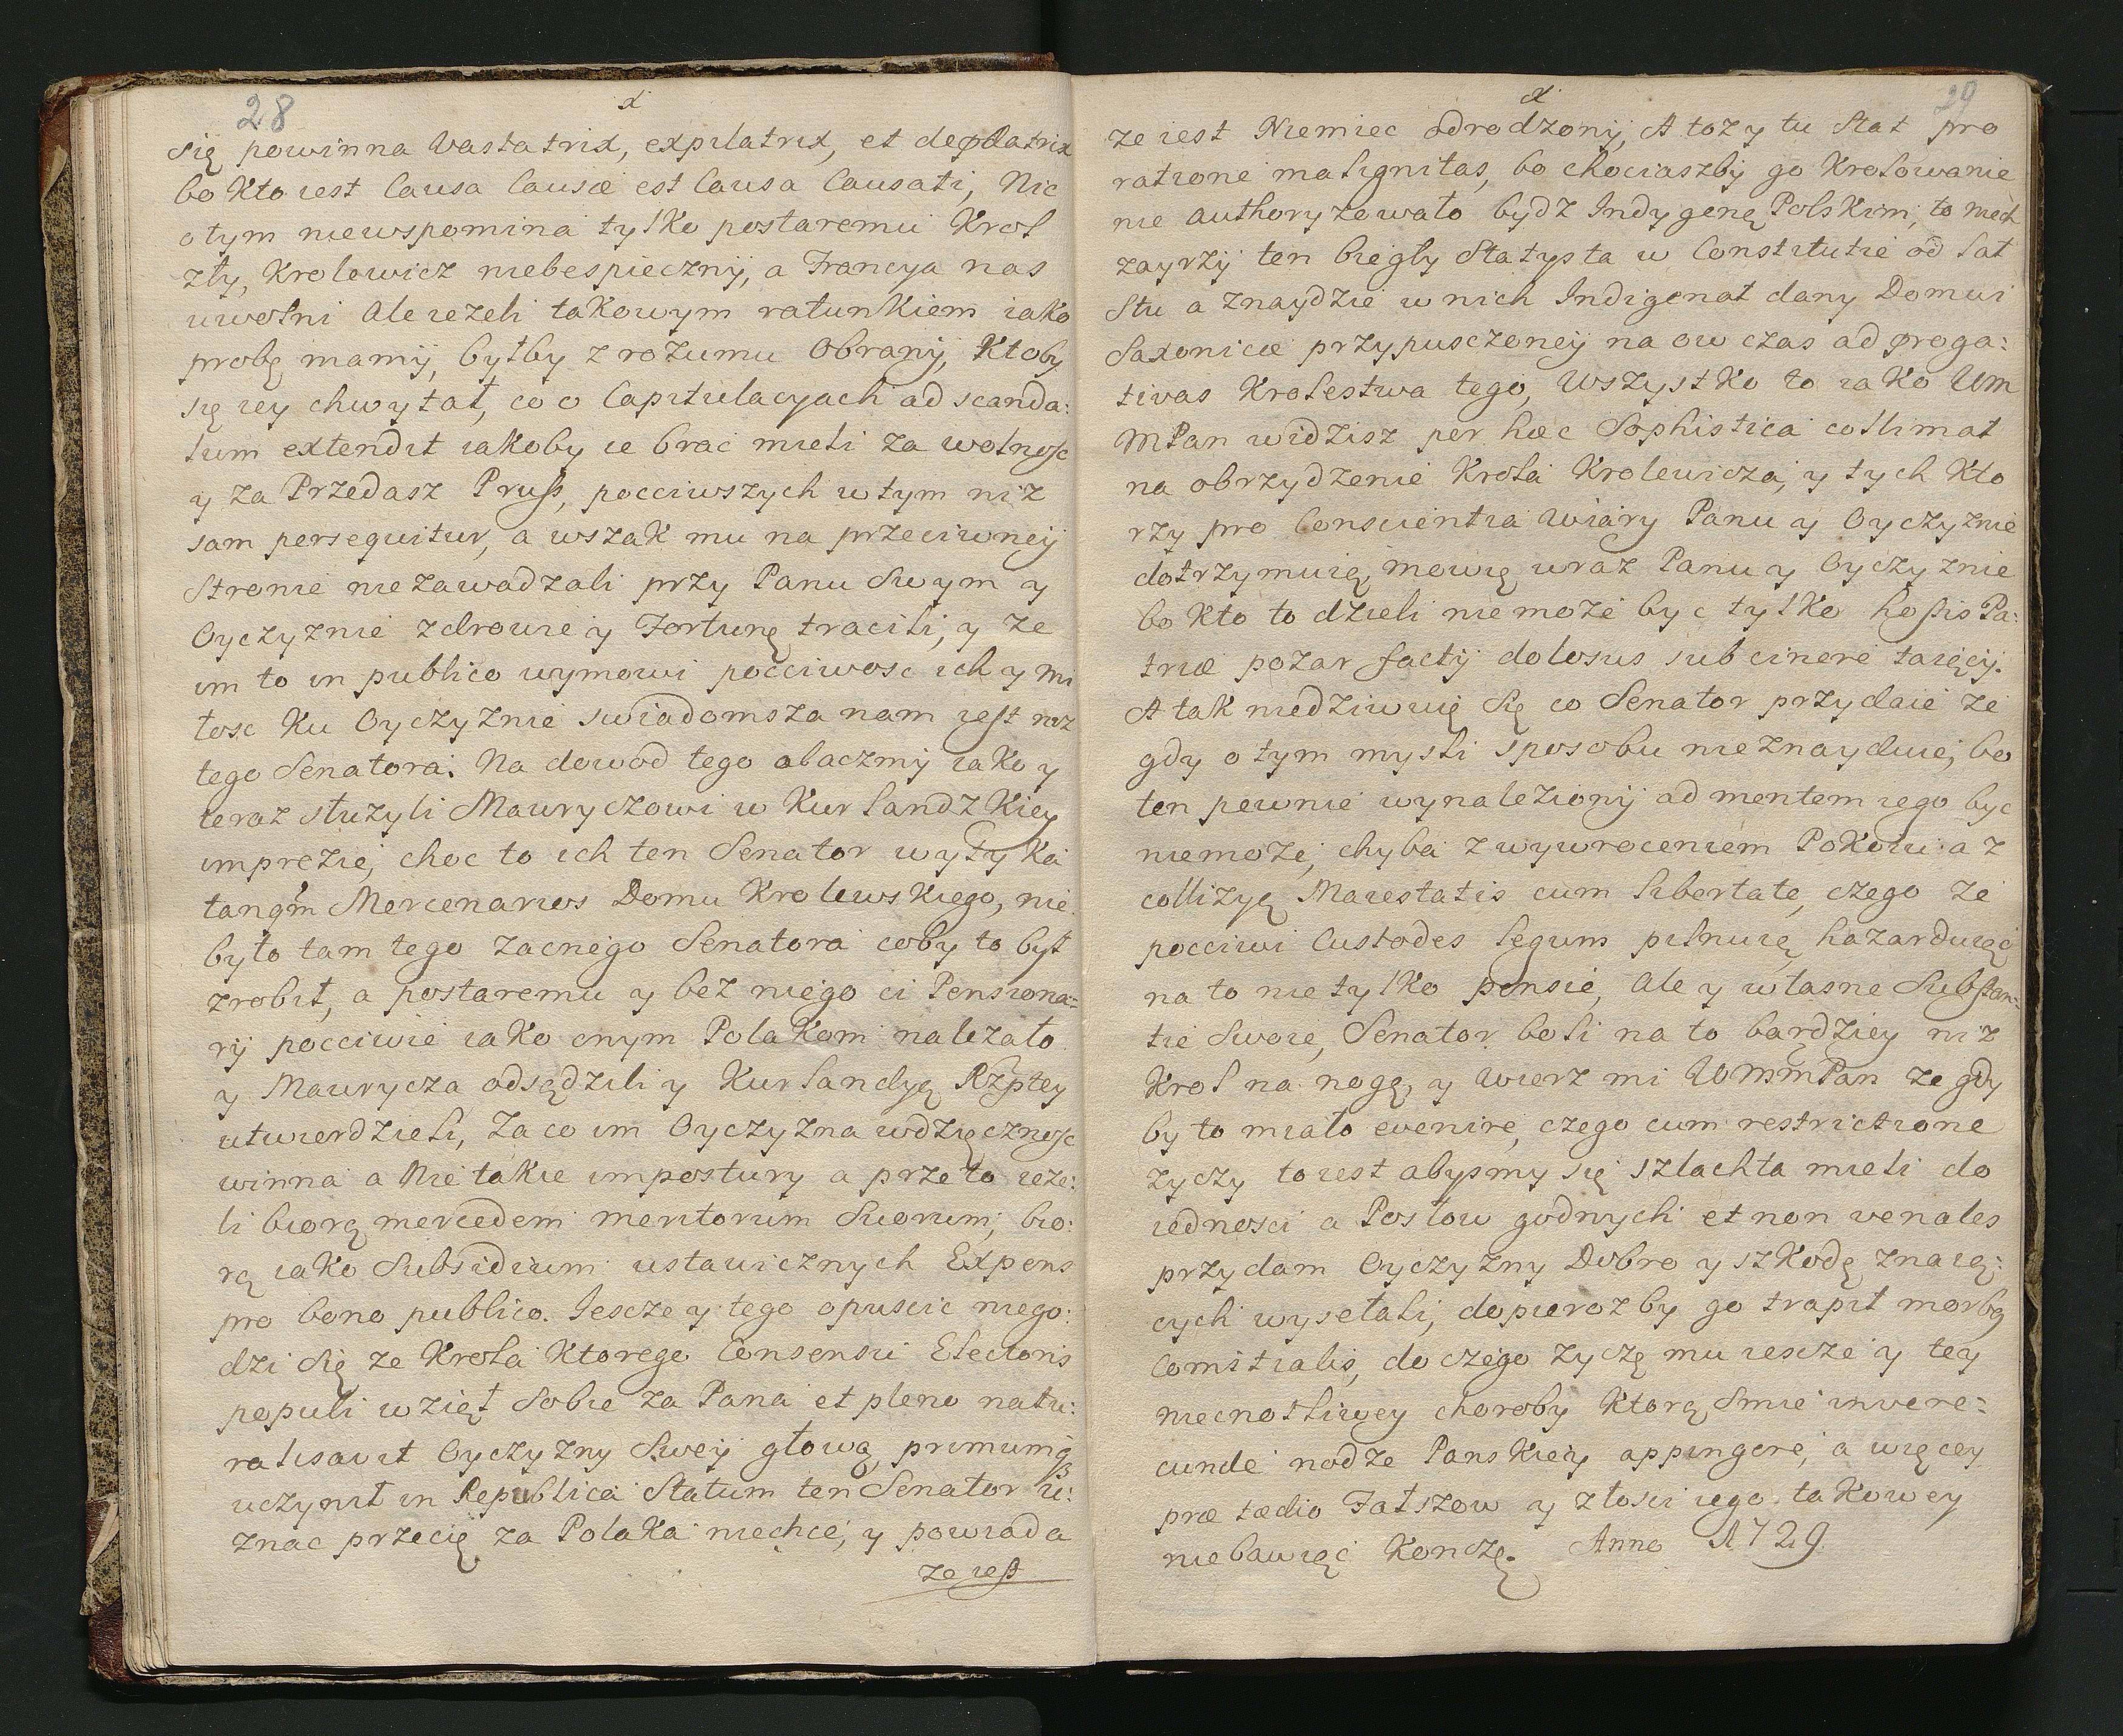 28
x
się powinna Vastatrix, expilatrix, et depdlatrix
bo Kto iest Causa Causæ est Causa Causati, Nic
o tym niewspomina tylko postaremu Krol
zły, Krolewicz niebespiecznÿ, a Francya nas
uwolni Ale ieżeli takowym ratunkiem iako
probę mamÿ, byłby z rozumu Obranÿ, Ktoby
się iey chwytał, co o Capitulacyach ad scanda:
lum extendit iakoby ie brac mieli za wolnosc
y za Przedasz Pruss, pocciwszych w tym niż
sam persequitur, a wszak mu na przeciwneÿ
Stronie niezawadzali przy Panu Swym y
Oyczyznie zdrowie y Fortunę tracili, y że
im to in publico wymowi pocciwosc ich y mi
łosc Ku Oyczyznie swiadomsza nam iest niz
tego Senatora. Na dowod tego obaczmÿ iako y
teraz służyli Mauryczowi w Kurlandzkiey
imprezie, choc to ich ten Senator wytyka
tanqm Mercenarios Domu Krolewskiego, nie
było tam tego zacnego Senatora coby to był
zrobił, a postaremu y bez niego ci Pensiona:
rÿ pocciwie iako cnym Polakom należało
y Maurycza odsądzili y Kurlandyą Rzptey
utwierdzieli, Za co im Oyczyzna wdzięcznosc
winna a Nie takie impostury a przeto ieże:
li biorą mercedem meritorum Suorum, bio:
rą iako Subsidium ustawicznych Expens
pro bono publico. Iescze y tego opuscic niego:
dzi się ze Krola Ktorego Consensu Electoris
populi wziął Sobie za Pana et pleno natu:
ralisavit Oyczyzny Sweÿ głową, primumq
uczynił in Republica Statum ten Senator u:
znac przecię za Polaka niechce, y powiada
ze iest
29
x
ze iest Niemiec odrodzonÿ, A toż y tu Stat pro
ratione malignitas, bo chociaszbÿ go Krolowanie
nie authoryzowało bydz Indygeną Polskim, to niech
zayrzÿ ten biegły Statysta w Constitutie od lat
Stu a znaydzie w nich Indigenat dany Domui
Saxonicæ przypusczoneÿ na ow czas ad proga:
tivas Krolestwa tego, Wszystko to iako Um
MPan widzisz per hæc Sophistica collimat
na obrzydzenie Krola Krolewicza, y tych Kto
rzy pro Conscientia wiary Panu y Oyczyznie
dotrzymuią, mowię wraz Panu y Oyczyznie
bo Kto to dzieli niemoże byc tylko hostis Pa:
triæ pożar factÿ dolosus sub cinere taiącÿ.
A tak niedziwuię się co Senator przydaie że
gdy o tym mysli sposobu nie znayduie, bo
ten pewnie wynalezionÿ ad mentem iego byc
niemoże, chyba z wywroceniem Pokoiu a z
collizyą Maiestatis cum libertate, czego że
pocciwi Custodes legum pilnuią hazarduiąc
na to nie tylko pensie, Ale y własne Substan:
tie Swoie, Senator boli na to bardziey niż
Krol na nogę, y wierz mi WMmPan ze gdy
by to miało evenire, czego cum restrictione
życzy to iest abysmy się szlachta mieli do
iednosci a Posłow godnych et non venales
przydam Oyczyzny Dobro y szkodę znaią:
cych wysełali, dopierozby go trapił morbq
Comitialis, do czego życzę mu iescze y tey
niecnotliwey choroby Ktorą Smie invere:
cunde nodze Panskieÿ appingere, a więcey
præ tædio Fałszow y złosci iego takowey
niebawiąc Konczę. Anno 1729